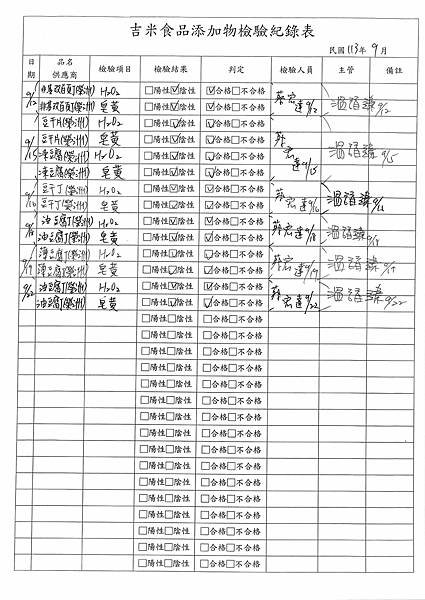 吉米食品添加物檢驗紀錄表
民國 113 年 9 月
日期 品名 供應商 檢驗項目 檢驗結果 判定 檢驗人員 主管 備註
9/12 H2O2 □陽性☑陰性 ☑合格□不合格 9/12 9/12
皂黃 □陽性☑陰性 ☑合格□不合格
豆干片(榮洲) H2O2 □陽性☑陰性 ☑合格□不合格
9/15 豆干片(榮洲) 皂黃 □陽性☑陰性 ☑合格□不合格 9/15 9/15
凍豆腐(榮洲) H2O2 □陽性☑陰性 ☑合格□不合格
凍豆腐(榮洲) 皂黃 □陽性☑陰性 ☑合格□不合格
9/16 豆干丁(榮洲) H2O2 □陽性☑陰性 ☑合格□不合格 9/16
豆干丁(榮洲) 皂黃 □陽性☑陰性 ☑合格□不合格
9/18 油豆腐丁(榮洲) H2O2 □陽性☑陰性 ☑合格□不合格 9/18
油豆腐丁(榮洲) 皂黃 □陽性☑陰性 ☑合格□不合格
9/19 H2O2 □陽性☑陰性 ☑合格□不合格 9/19 9/19
皂黃 □陽性☑陰性 ☑合格□不合格
9/22 油豆腐丁(榮洲) H2O2 □陽性☑陰性 ☑合格□不合格 9/22 9/22
油豆腐丁(榮洲) 皂黃 □陽性☑陰性 ☑合格□不合格
□陽性□陰性 □合格□不合格
□陽性□陰性 □合格□不合格
□陽性□陰性 □合格□不合格
□陽性□陰性 □合格□不合格
□陽性□陰性 □合格□不合格
□陽性□陰性 □合格□不合格
□陽性□陰性 □合格□不合格
□陽性□陰性 □合格□不合格
□陽性□陰性 □合格□不合格
□陽性□陰性 □合格□不合格
□陽性□陰性 □合格□不合格
□陽性□陰性 □合格□不合格
□陽性□陰性 □合格□不合格
□陽性□陰性 □合格□不合格
□陽性□陰性 □合格□不合格
□陽性□陰性 □合格□不合格